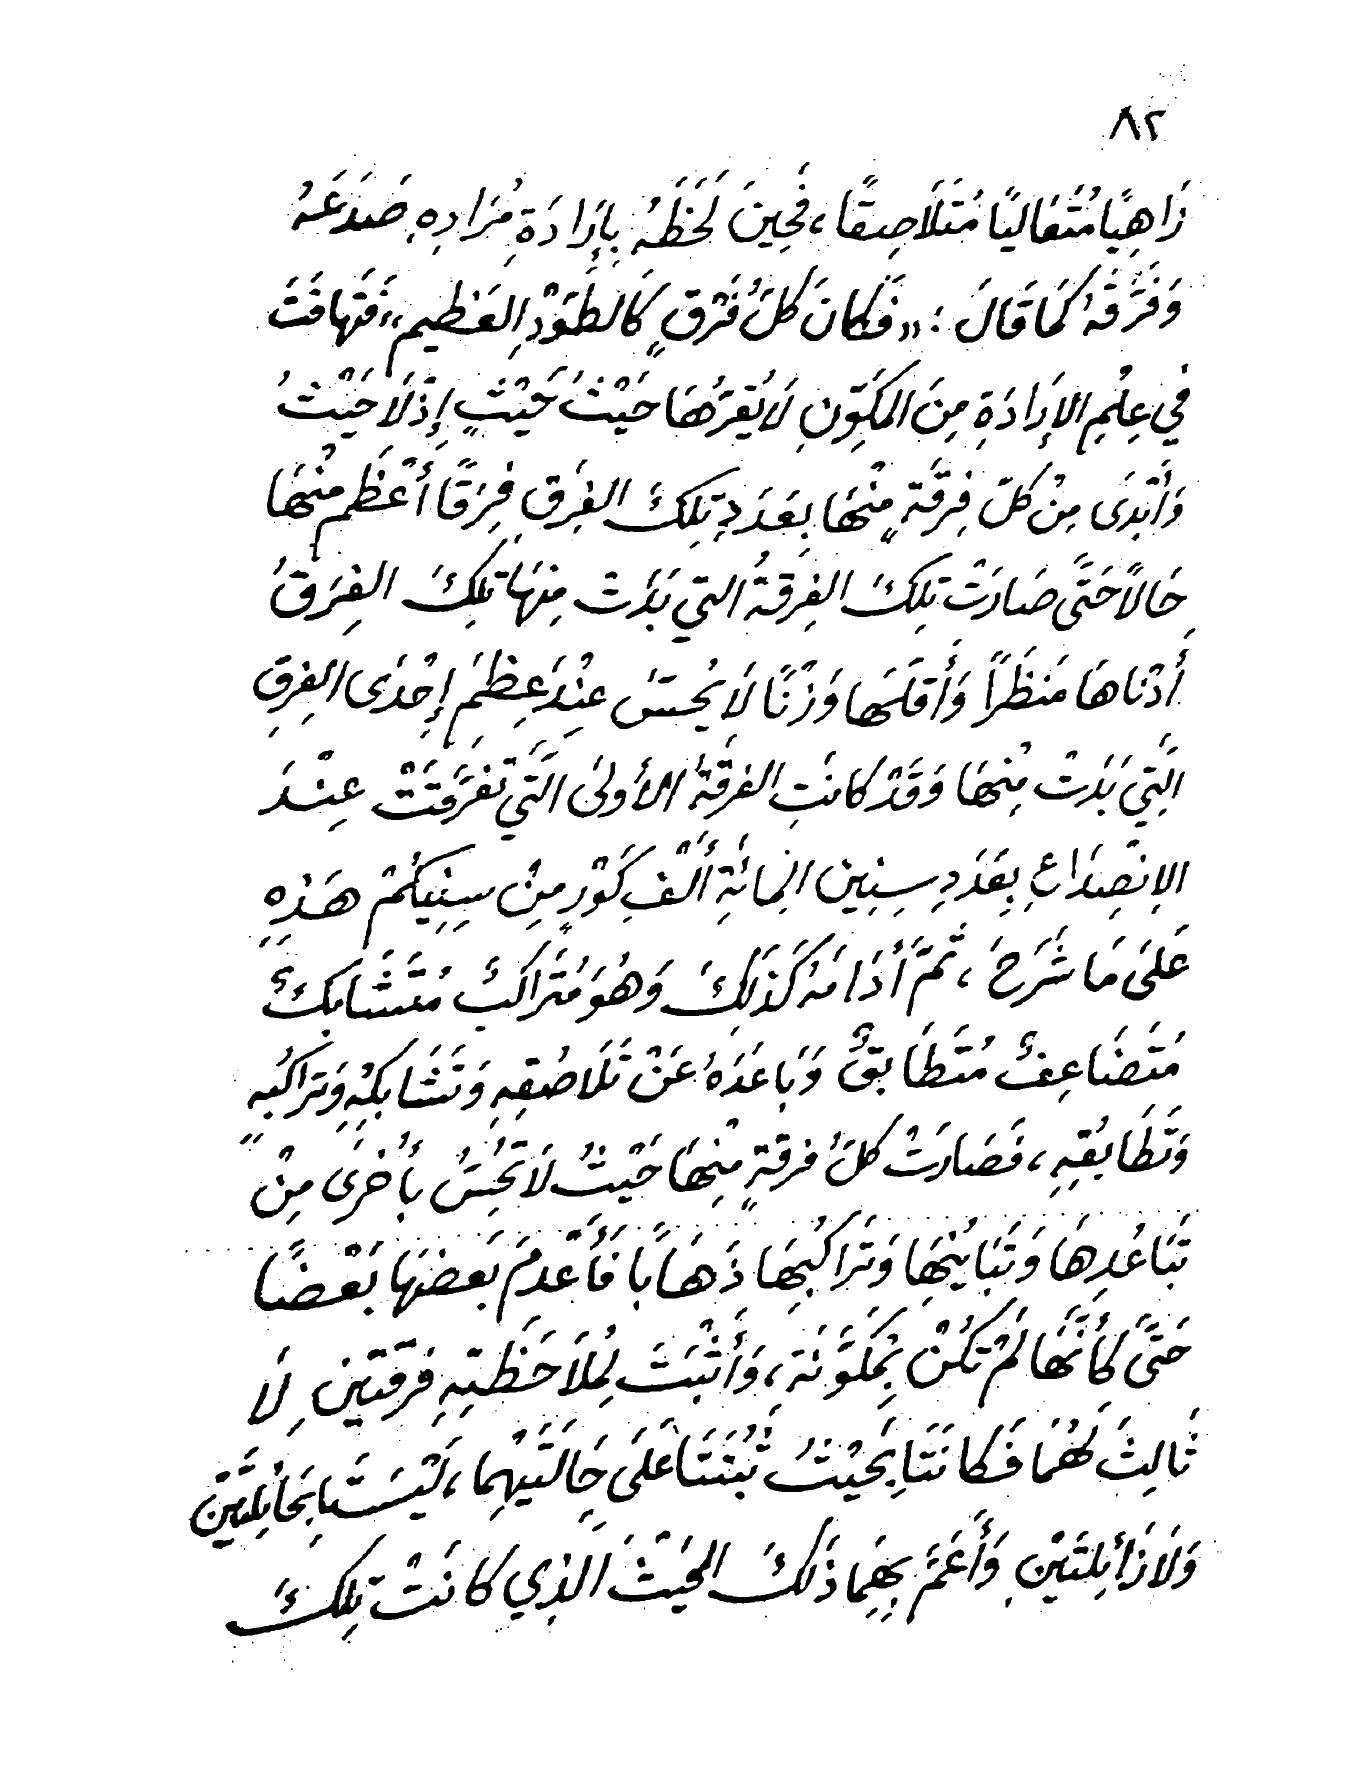 ٨٢
زَاهِيًا مُتَعَالِيًا مُتَلَاصِقًا، فَحِينَ لَحَظَهُ بِإِرَادَةِ مُرَادِهِ صَدَعَهُ
وَفَرَّقَهُ كَمَا قَالَ : «فَكَانَ كُلُّ فَرْقٍ كَالطَوْدِ العَظِيمِ» فَتَهَافَتَ
فِي عِلْمِ الإِرَادَةِ مِنَ المُكَوِّنِ لَا يُقِرُّهَا حَيْثُ حَيْثٍ إِذْ لَا حَيْثُ
وَأَبْدَى مِنْ كُلِّ فِرْقَةٍ مِنْهَا بِعَدَدِ تِلْكَ الفِرَقِ فِرَقًا أَعْظَمَ مِنْهَا
حَالاً حَتَّى صَارَتْ تِلكَ الفِرقَةُ التِي بَدَتْ مِنهَا تِلكَ الفِرَقُ
أَدْنَاهَا مَنظَرًا وَأَقَلَّهَا وَزْنًا لَا يُحَسُّ عِنْدَ عِظَمِ إِحْدَى الفِرَقِ
الَّتِي بَدَتْ مِنهَا وَقَدْ كَانَتِ الفِرقَةُ الأُولَى الَّتِي تَفَرَّقَتْ عِنْدَ
الإِنصِدَاعِ بِعَدَدِ سِنِين المِائَةِ أَلْفِ كَوْرٍ مِنْ سِنِيكُمْ هَذِهِ
عَلَى مَا شَرَحَ ، ثُمَّ أَدَامَهُ كَذَلِكَ وَهُوَ مُتَرَاكِبٌ مُتَشَابِكٌ
مُتَضَاعِفٌ مُتَطَابِقٌ وَبَاعَدَهُ عَنْ تَلَاصُقِهِ وَتَشَابُكِهِ وَتَرَاكُبِهِ
وَتَطَابُقِهِ ، فَصَارَتْ كُلُّ فِرقَةٍ مِنْهَا حَيْثُ لَا تُحِسُّ بِأُخرَى مِنْ
تَبَاعُدِهَا وَتَبَايُنِهَا وَتَرَاكُبِهَا ذَهَابًا فَأَعْدَمَ بَعضَهَا بَعْضًا
حَتَّى كَأَنَّهَا لَمْ تَكُنْ بِمُكَوَّنَةٍ ، وَأَثْبَتَ لِمُلَاحَظَتِهِ فِرقَتَينِ لَا
ثَالِثَ لَهُمَا فَكَانَتَا بِحَيْثُ ثَبُتَتَا عَلَى حَالَتَيْهِمَا ، لَيْسَتَا بِحَائِلَتَيْنِ
وَلَا زَائِلَتَيْنِ وَأَعَمَّ بِهِمَا ذَلِكَ الحَيْثَ الذِي كَانَتْ تِلكَ